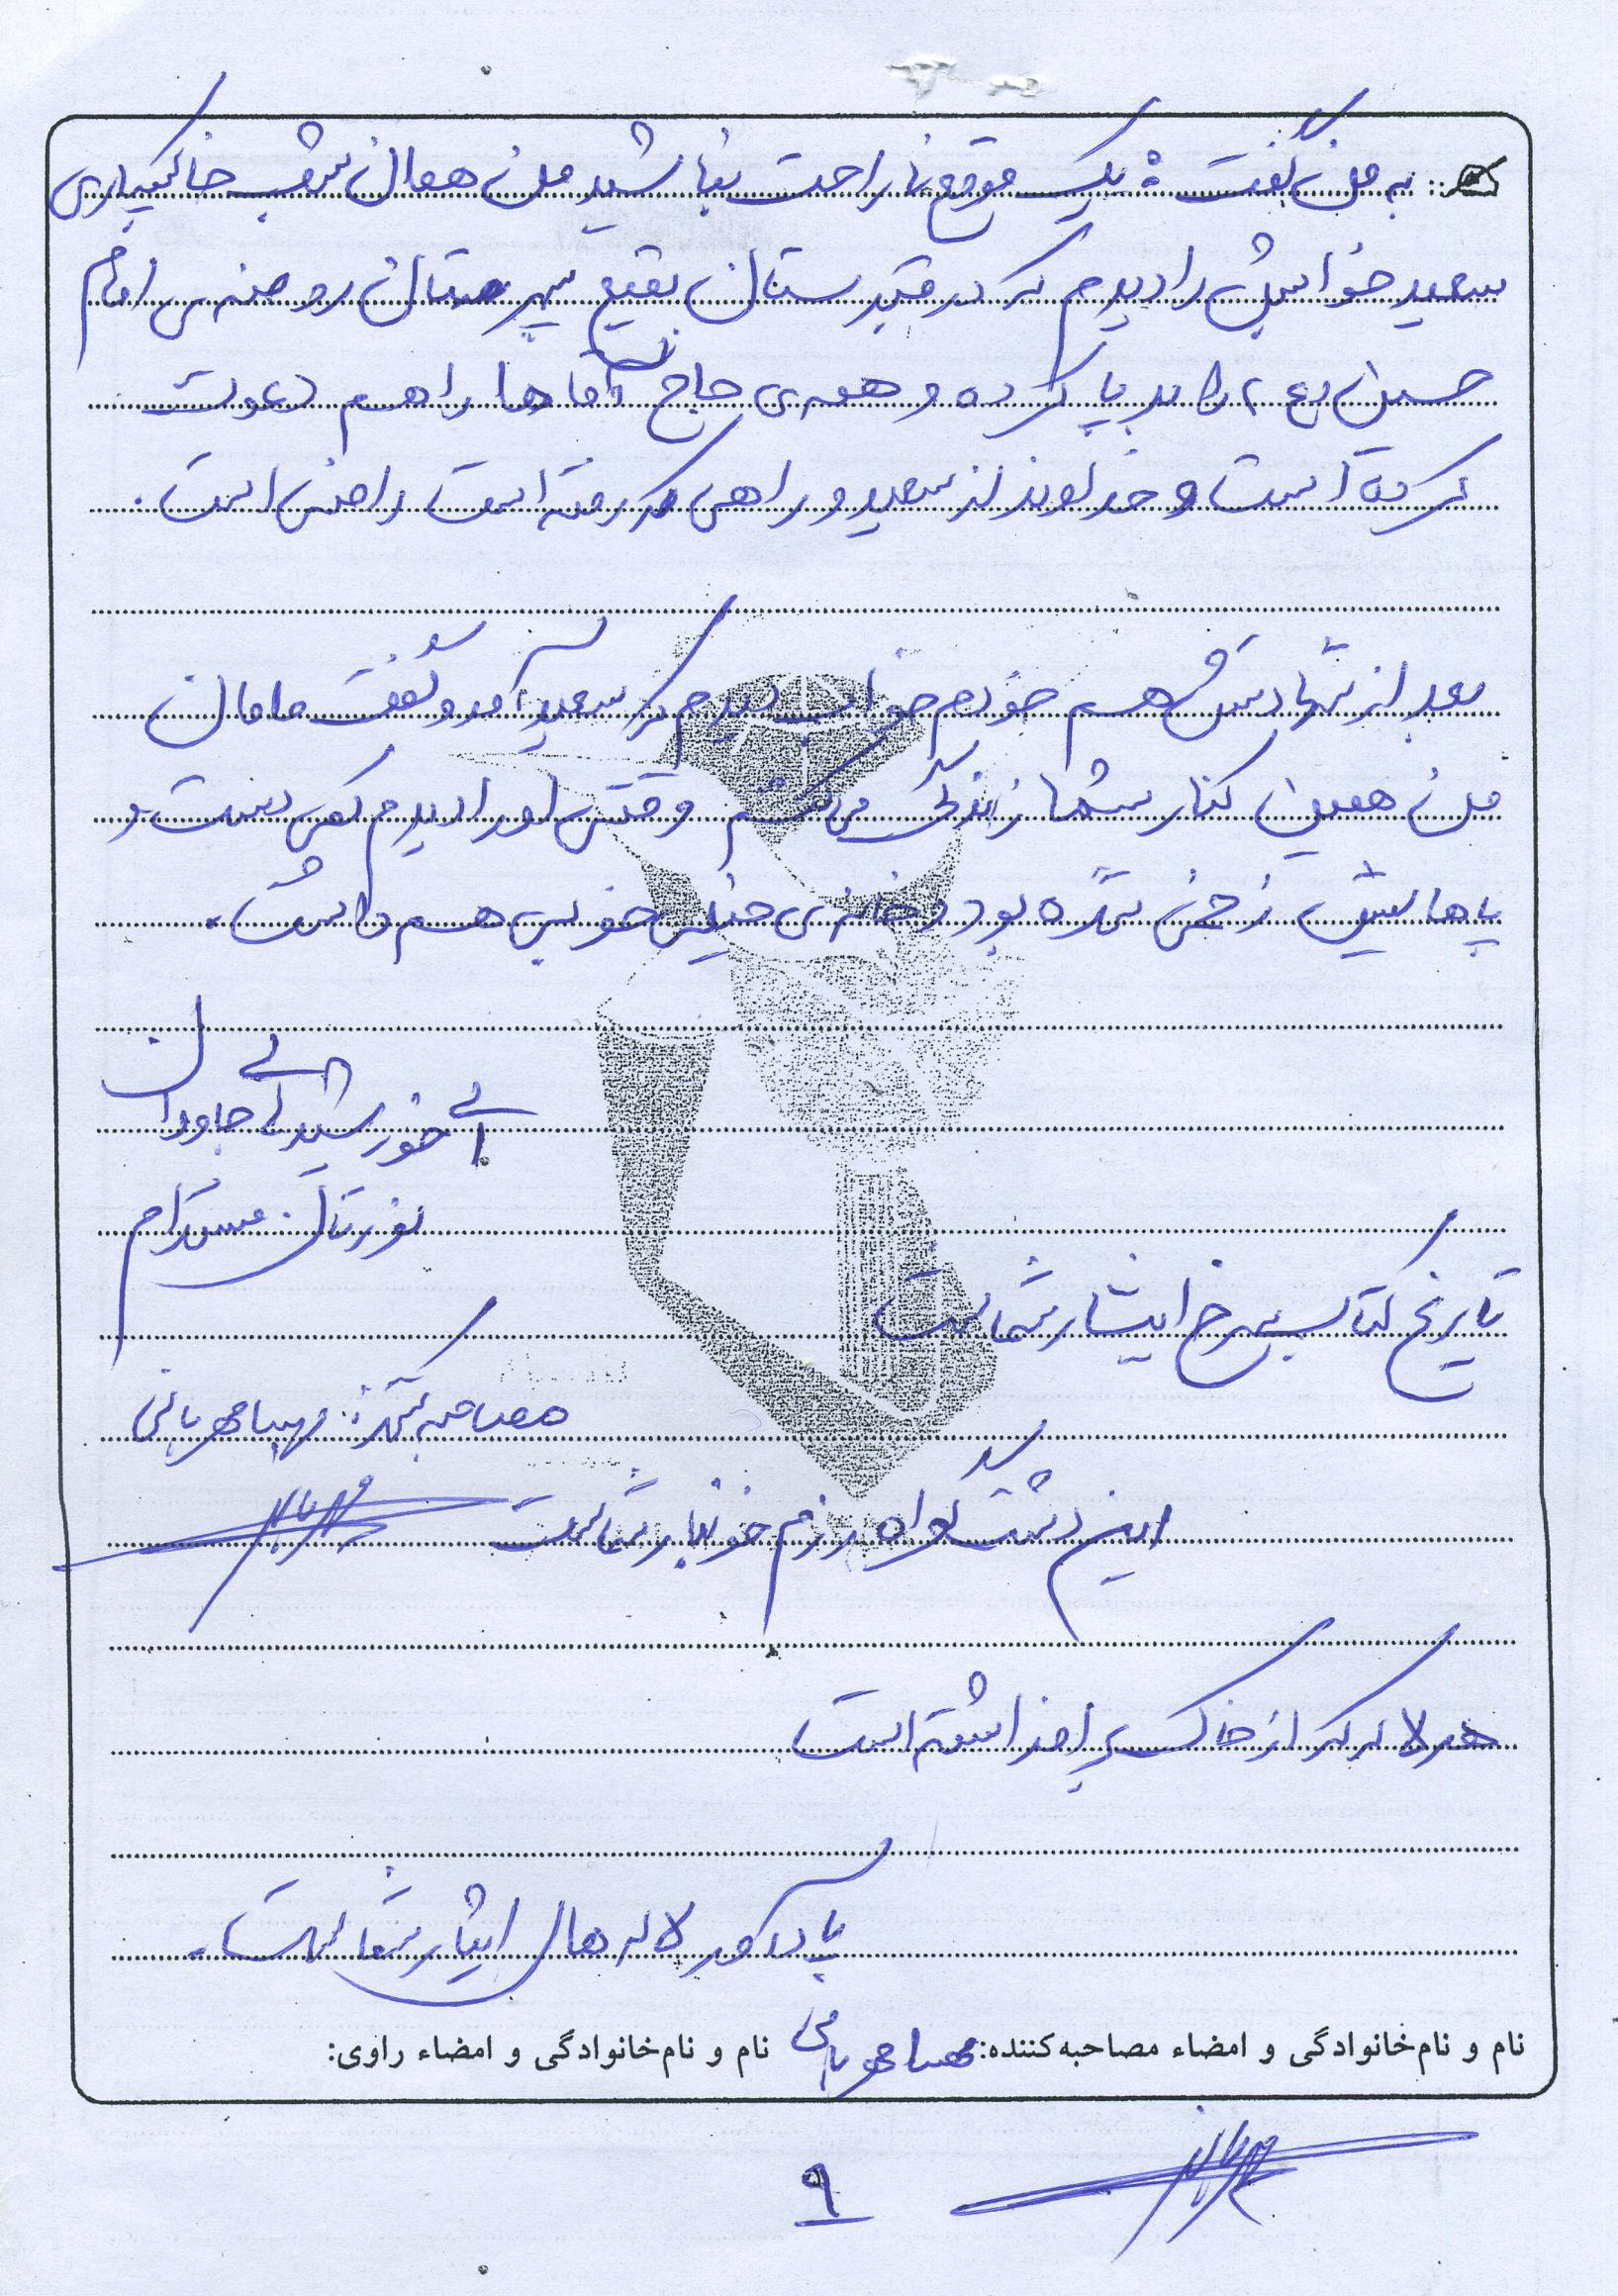 به من گفت: یک موقع ناراحت نباشید من همان شب خاکسپاری
سعید خوابش را دیدم که در قبرستان بقیع سپرستان روضه ی امام
حسین (ع) را برپا کرده و همه ی حاج آقاها را هم دعوت
کرده است و خداوند از سعید و راهی که رفته است راضی است.
بعد از شهادتش هم خودم خواب دیدم که سعید آمد و گفت مامان
من همین کنار شما زندگی می کنم وقتی او را دیدم کمی دست و
پاهایش زخمی شده بود و خانه ی خیلی خوبی هم داشت.
ای خورشیدهای جاودان
نورتان مستدام
تاریخ کتاب سرخ ایثار شماست
مصاحبه کننده: مهسا مهربانی
این دشت گواه رزم خونبار شماست
هر لاله که از خاک برافراشته است
یادآور لاله های ایثار شماست.
نام و نام‌خانوادگی و امضاء مصاحبه‌کننده: مهسا مهربانی نام و نام‌خانوادگی و امضاء راوی:
۹